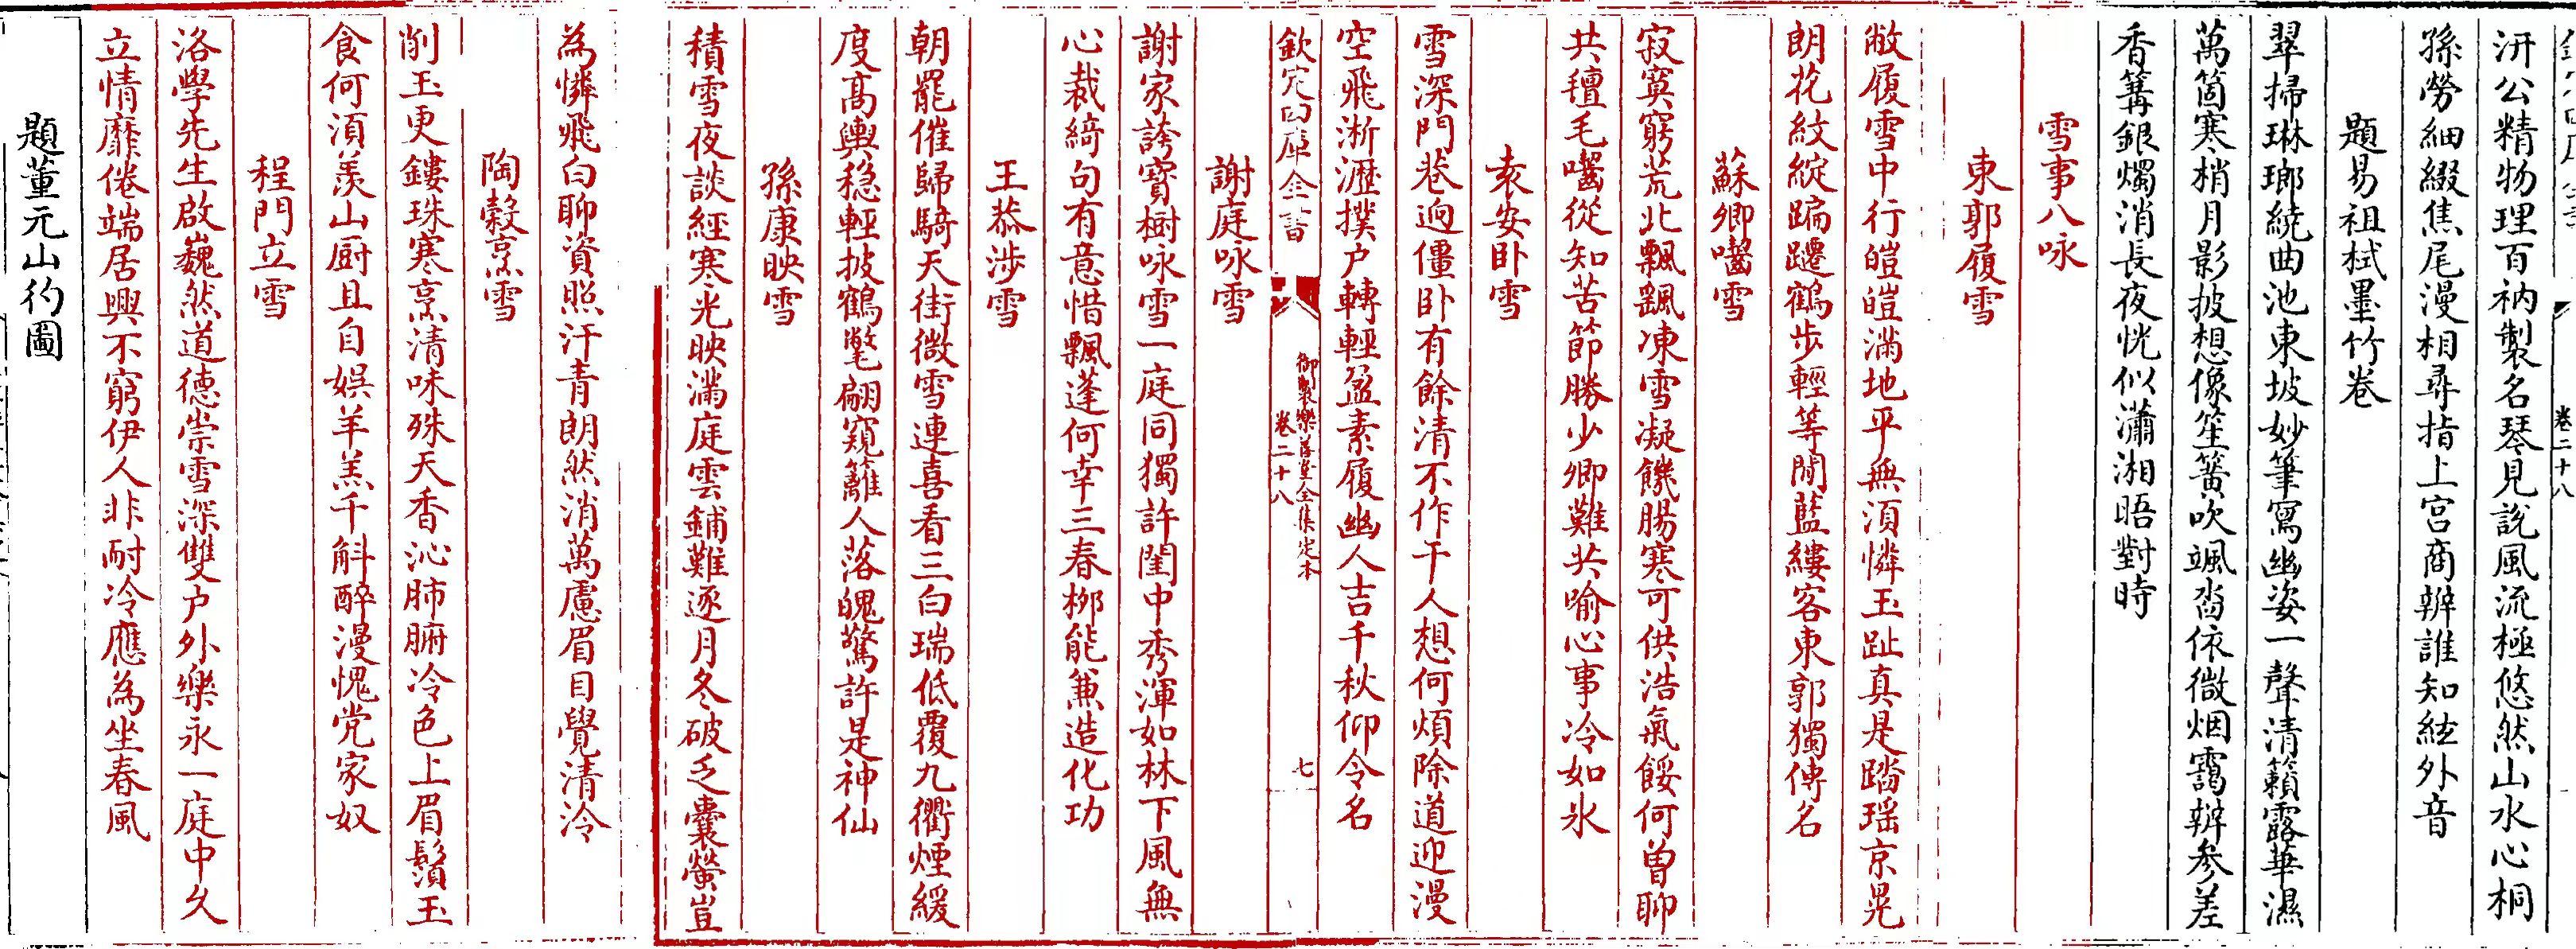 卷二十八
汧公精物理百衲製名琴見說風流極悠然山水心桐
孫勞細綴焦尾漫相尋指上宫商辨誰知絃外音
題易祖栻墨竹卷
翠掃琳瑯繞曲池東坡妙筆寫幽姿一聲清籟露華濕
萬箇寒梢月影披想像笙簧吹颯沓依微烟靄辨參差
香篝銀燭消長夜恍似瀟湘晤對時
雪事八咏
東郭履雪
敝履雪中行皚皚滿地平無須憐玉趾真是踏瑶京晃
朗花紋綻蹁躚鶴步輕等閒藍縷客東郭獨傳名
蘇卿嚙雪
寂寞窮荒北飄飄凍雪凝饑腸寒可供浩氣餒何曽聊
共氊毛嚙從知苦節勝少卿難共喻心事冷如氷
袁安卧雪
雪深門巷逈僵卧有餘清不作干人想何煩除道迎漫
空飛淅瀝撲户轉輕盈素履幽人吉千秋仰令名
欽定四庫全書
御製樂善堂全集定本
卷二十八
七
謝庭咏雪
謝家誇寶樹咏雪一庭同獨許閨中秀渾如林下風無
心裁綺句有意惜飄蓬何幸三春栁能兼造化功
王恭涉雪
朝罷催歸騎天街微雪連喜看三白瑞低覆九衢煙緩
度髙輿稳輕披鶴氅翩窺籬人落魄驚許是神仙
孫康映雪
積雪夜談經寒光映滿庭雲鋪難逐月冬破乏囊螢豈
為憐飛白聊資照汗青朗然消萬慮眉目覺清泠
陶穀烹雪
削玉更鏤珠寒烹清味殊天香沁肺腑冷色上眉鬚玉
食何須羡山厨且自娱羊羔千斛醉漫愧党家奴
程門立雪
洛學先生啟巍然道徳崇雪深雙户外樂永一庭中久
立情靡倦端居興不窮伊人非耐冷應為坐春風
題董元山彴圖